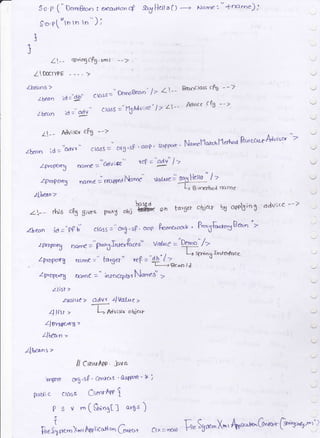 S.o.p ("DemoBean : execution of SayHello() → Name:" + name);
S.o.p("\n \n \n");
}
}
<!-- springcfg.xml -->
<!DOCTYPE ---->
<beans>
<bean id="db" class="DemoBean"/> <!-- Beanclass cfg -->
<bean id="adv" class="MyAdvice"/> <!-- Advice cfg -->
<!-- Advisor cfg -->
<bean id="advr" class="org.sf.aop.support.NameMatchMethodPointcutAdvisor">
<property name="advice" ref="adv"/>
<property name="mappedName" value="sayHello"/>
↳ B.method name
</bean>
<!-- this cfg gives proxy obj based on target object by applying advice -->
<bean id="pfb" class="org.sf.aop.framework.ProxyFactoryBean">
<property name="proxyInterfaces" value="Demo"/>
↳ Spring Interface
<property name="target" ref="db"/>
↳ Bean id
<property name="interceptorNames">
<list>
<value> advr </value>
</list> ↳ Advisor object
</property>
</bean>
</beans>
// ClientApp.java
import org.sf.context.support.*;
public class ClientApp {
p s v m (String[] args)
{
FileSystemXmlApplicationContext ctx = new FileSystemXmlApplicationContext